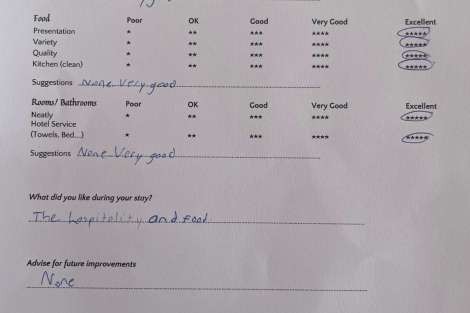 Food Poor OK Good Very Good Excellent
Presentation * ** *** **** *****
Variety * ** *** **** *****
Quality * ** *** **** *****
Kitchen (clean) * ** *** **** *****
Suggestions None Very good
Rooms/ Bathrooms Poor OK Good Very Good Excellent
Neatly * ** *** **** *****
Hotel Service
(Towels, Bed...) * ** *** **** *****
Suggestions None Very good
What did you like during your stay?
The hospitality and food
Advise for future improvements
None